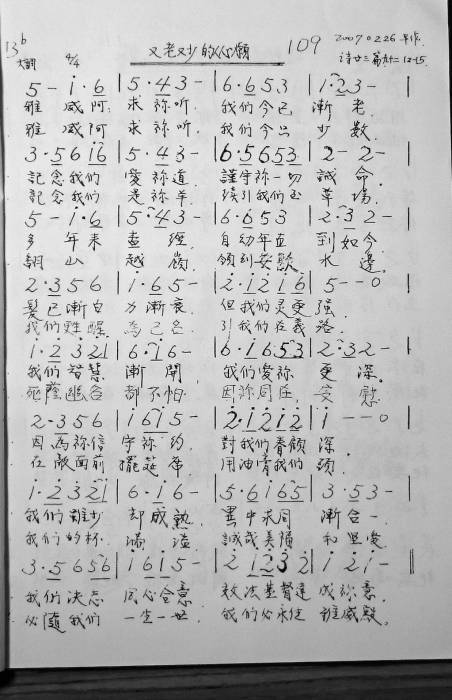 13b 大調 4/4 又老又少的心願 109 2007.02.26
詩廿三篇 12-15
5 - i · 6 | 5 · 4 3 - | 6 · 6 5 3 | 1 · 2 3 - |
雅威阿 求祢听 我們今已 漸老
雅威阿 求祢听 我們今只 少數
3 · 5 6 i6 | 5 · 4 3 - | 6 · 5 6 5 3 | 2 - 2 - |
記念我們 愛祢道 謹守祢一切 誡命
記念我們 是祢羊 續引我們至 草場
5 - i · 6 | 5 · 4 3 - | 6 · 6 5 3 | 2 · 3 2 - |
多年来 查經 自幼年直 到如今
朝山 越嶺 領到安歇 水邊
2 · 3 5 6 | i · 6 5 - | 2 · i 2 i 6 | 5 - - 0 |
髮已漸白 力漸衰 但我們灵更 强
我們甦醒 為己名 引我們在義 路
1 · 2 3 2 1 | 6 · i 6 - | 6 · i 6 5 3 | 2 · 3 2 - |
我們智慧 漸開 我們愛祢 更深
死蔭幽谷 都不怕 因祢同在 安慰
2 · 3 5 6 | i 6 i 5 - | 2 · i 2 i 2 | i - - 0 |
因為祢信 守祢約 對我們眷顧 深
在敵面前 擺筵席 用油膏我們 頭
1 · 2 3 2 1 | 6 · i 6 - | 5 · 6 i 6 5 | 3 · 5 3 - |
我們雖少 却成熟 異中求同 漸合一
我們的杯 滿溢 誠哉美隨 和恩愛
3 · 5 6 5 6 | i 6 i 5 - | 2 i 2 3 2 | i 2 i - ||
我們决志 同心合意 效法基督達 成祢意
必隨我們 一生一世 我們必永住 雅威殿